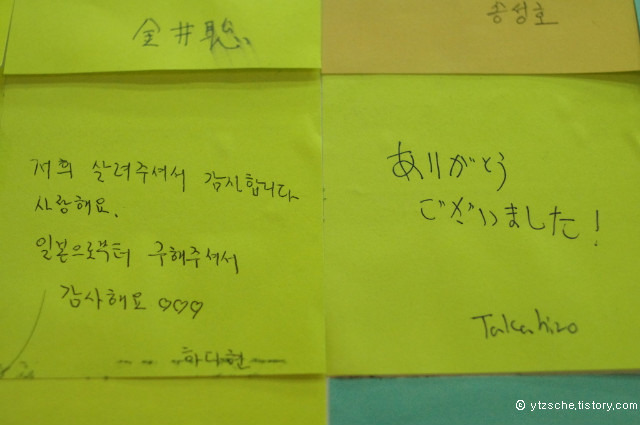 金井聡
송성호
저희 살려주셔서 감사합니다
사랑해요.
일본으로부터 구해주셔서
감사해요 ♡♡♡
하다현
ありがとう
ございました!
Takahiro
© ytzsche.tistory.com